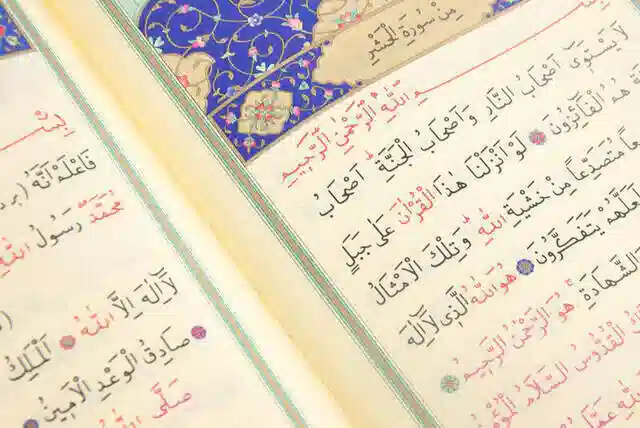 مِنْ سُورَةِ الْحَشْرِ
اللّٰهِ الرَّحْمٰنِ الرَّحِيمِ
لَا يَسْتَوِى اَصْحَابُ النَّارِ وَاَصْحَابُ الْجَنَّةِ اَصْحَابُ
هُمُ الْفَائِزُونَ لَوْ اَنْزَلْنَا هٰذَا الْقُرْاٰنَ عَلٰى جَبَلٍ
مُتَصَدِّعًا مِنْ خَشْيَةِ اللّٰهِ وَتِلْكَ الْاَمْثَالُ
يَتَفَكَّرُونَ هُوَ اللّٰهُ الَّذِى لَا اِلٰهَ
الشَّهَادَةِ هُوَ الرَّحْمٰنُ الرَّحِيمُ
الْقُدُّوسُ السَّلَامُ
عَمَّا
فَاعْلَمْ اَنَّهُ
مُحَمَّدٌ رَسُولُ اللّٰهِ
لَا اِلٰهَ اِلَّا اللّٰهُ اَلْمَلِكُ
صَادِقُ الْوَعْدِ الْاَمِينُ
صَلَّى